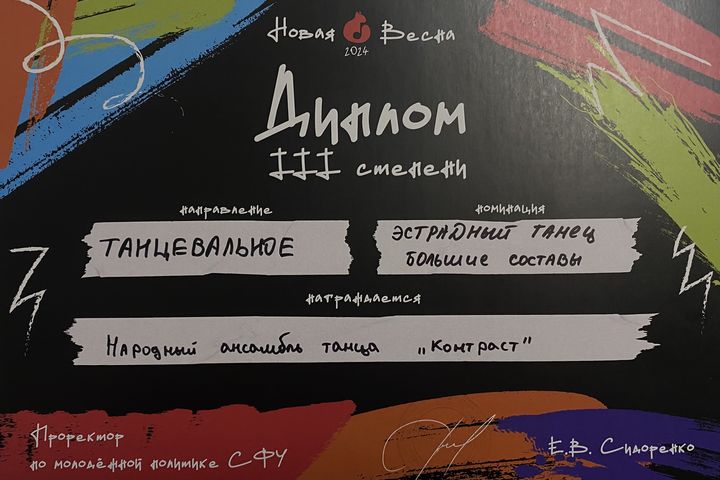 Новая Весна
2024
Диплом
III степени
направление
номинация
ТАНЦЕВАЛЬНОЕ
ЭСТРАДНЫЙ ТАНЕЦ
БОЛЬШИЕ СОСТАВЫ
награждается
Народный ансамбль танца „Контраст"
Проректор
по молодёжной политике СФУ
Е.В. Сидоренко